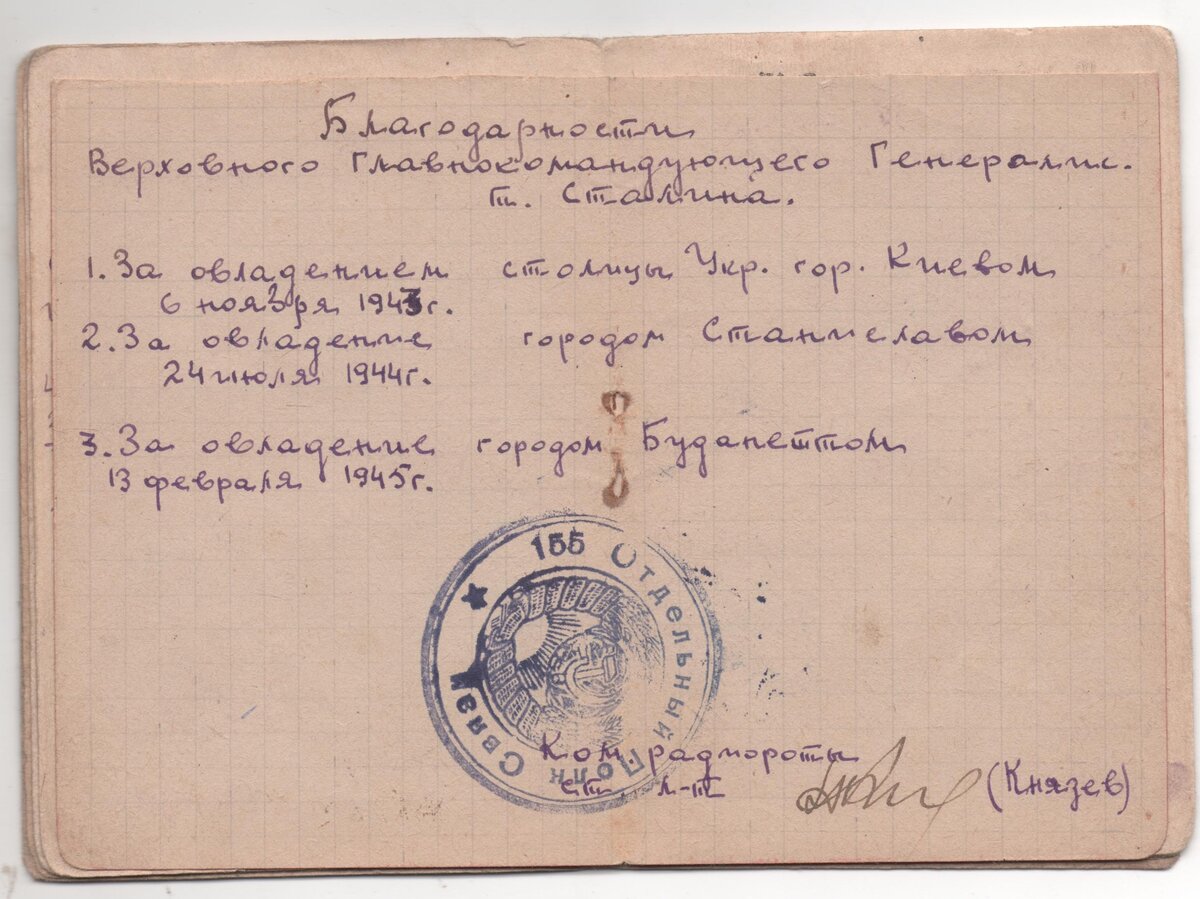 Благодарности
Верховного Главнокомандующего Генералис.
т. Сталина.
1. За овладением столицы Укр. гор. Киевом
6 ноября 1943г.
2. За овладение городом Станиславом
24 июля 1944г.
3. За овладение городом Будапештом
13 февраля 1945г.
155 Отдельный Полк Связи
Ком. радиороты
ст. л-т (Князев)